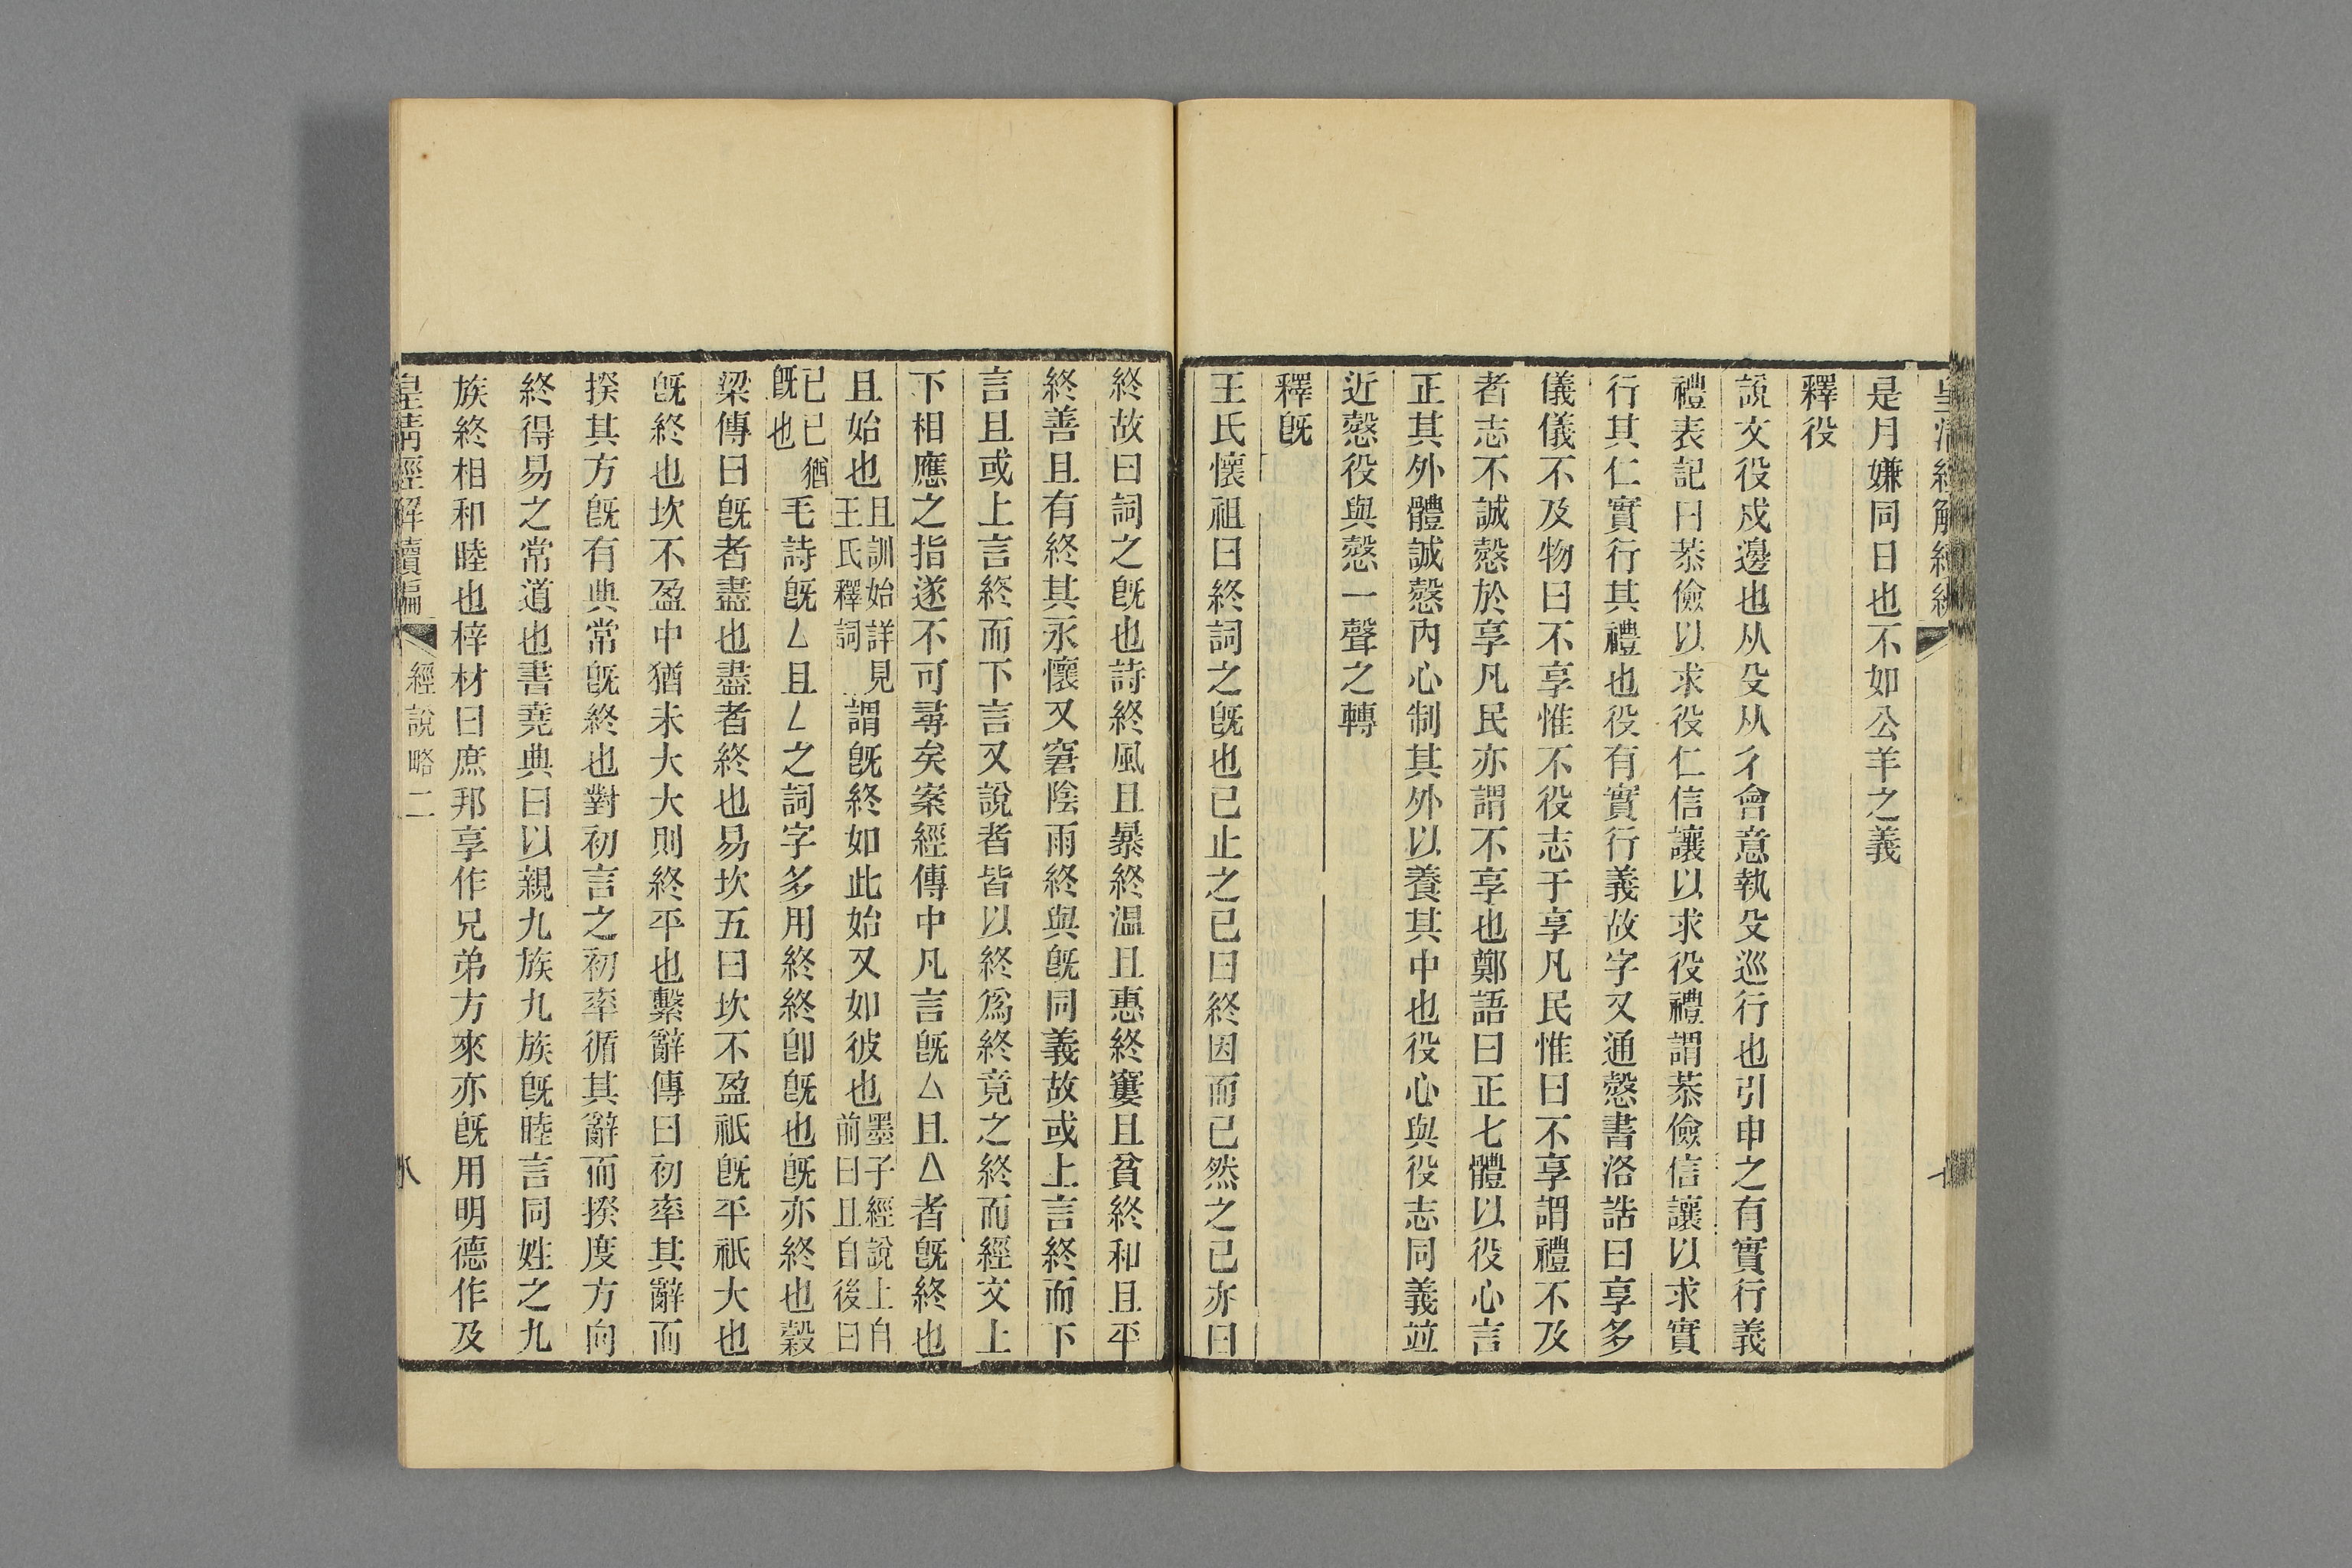 皇清經解續編
是月嫌同日也不如公羊之義
釋役
說文役戍邊也从殳从彳會意執殳巡行也引申之有實行義
禮表記曰恭儉以求役仁信讓以求役禮謂恭儉信讓以求實
行其仁實行其禮也役有實行義故字又通慤書洛誥曰享多
儀儀不及物曰不享惟不役志于享凡民惟曰不享謂禮不及
者志不誠慤於享凡民亦謂不享也鄭語曰正七體以役心言
正其外體誠慤內心制其外以養其中也役心與役志同義竝
近慤役與慤一聲之轉
釋旣
王氏懷祖曰終詞之旣也已止之已曰終因而已然之已亦曰
終故曰詞之旣也詩終風且暴終温且惠終窶且貧終和且平
終善且有終其永懷又窘陰雨終與旣同義故或上言終而下
言且或上言終而下言又說者皆以終爲終竟之終而經文上
下相應之指遂不可尋矣案經傳中凡言旣厶且厶者旣終也
且始也且訓始詳見王氏釋詞謂旣終如此始又如彼也墨子經說上自前曰且自後曰
已已猶旣也毛詩旣厶且厶之詞字多用終終卽旣也旣亦終也榖
梁傳曰旣者盡也盡者終也易坎五曰坎不盈祇旣平祇大也
旣終也坎不盈中猶未大大則終平也繫辭傳曰初率其辭而
揆其方旣有典常旣終也對初言之初率循其辭而揆度方向
終得易之常道也書堯典曰以親九族九族旣睦言同姓之九
族終相和睦也梓材曰庶邦享作兄弟方來亦旣用明德作及
皇淸經解續編 經說略二 八